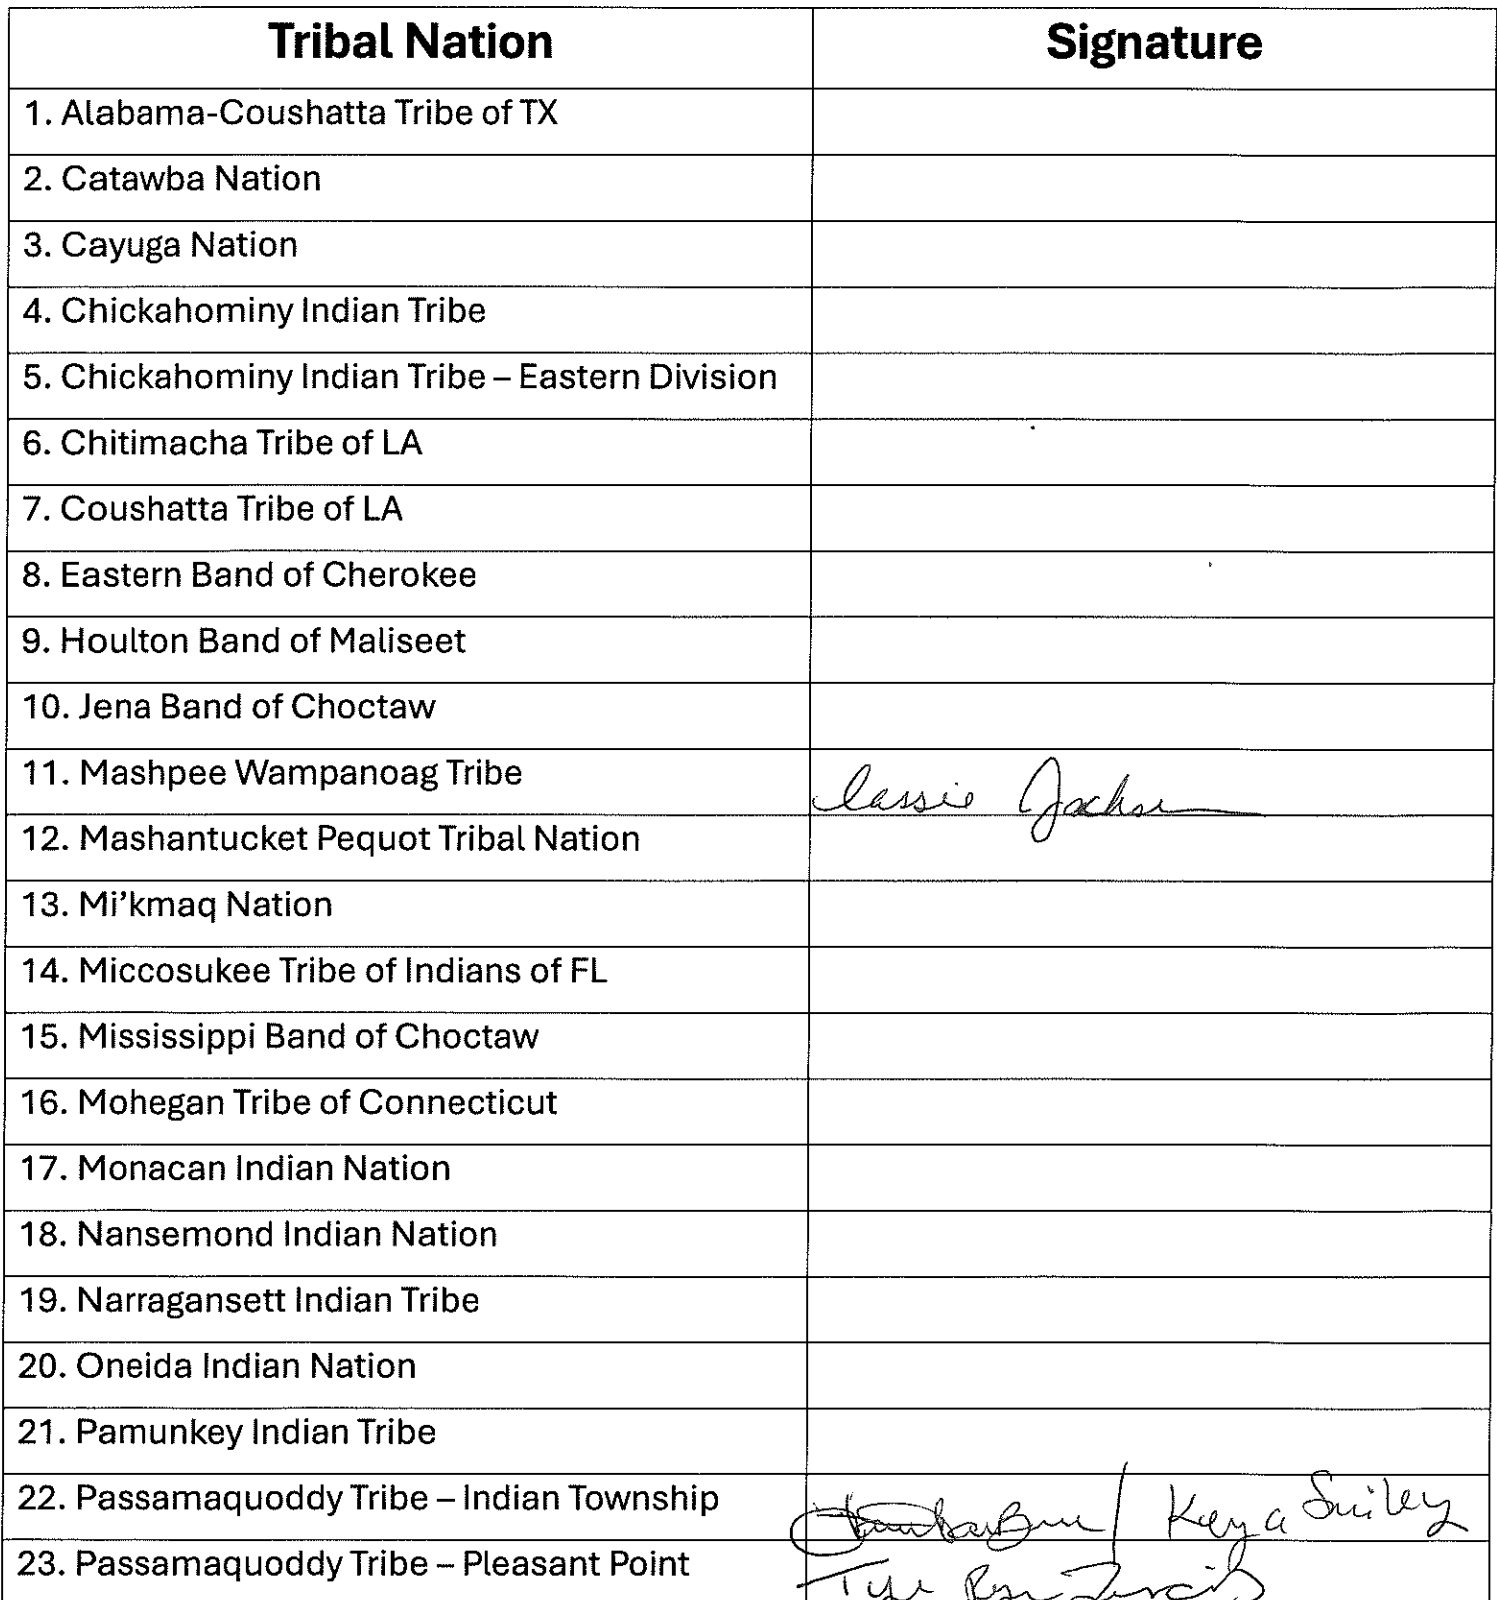 Tribal Nation Signature
1. Alabama-Coushatta Tribe of TX
2. Catawba Nation
3. Cayuga Nation
4. Chickahominy Indian Tribe
5. Chickahominy Indian Tribe – Eastern Division
6. Chitimacha Tribe of LA
7. Coushatta Tribe of LA
8. Eastern Band of Cherokee
9. Houlton Band of Maliseet
10. Jena Band of Choctaw
11. Mashpee Wampanoag Tribe Cassie Jackson
12. Mashantucket Pequot Tribal Nation
13. Mi’kmaq Nation
14. Miccosukee Tribe of Indians of FL
15. Mississippi Band of Choctaw
16. Mohegan Tribe of Connecticut
17. Monacan Indian Nation
18. Nansemond Indian Nation
19. Narragansett Indian Tribe
20. Oneida Indian Nation
21. Pamunkey Indian Tribe
22. Passamaquoddy Tribe – Indian Township / Smiley
23. Passamaquoddy Tribe – Pleasant Point